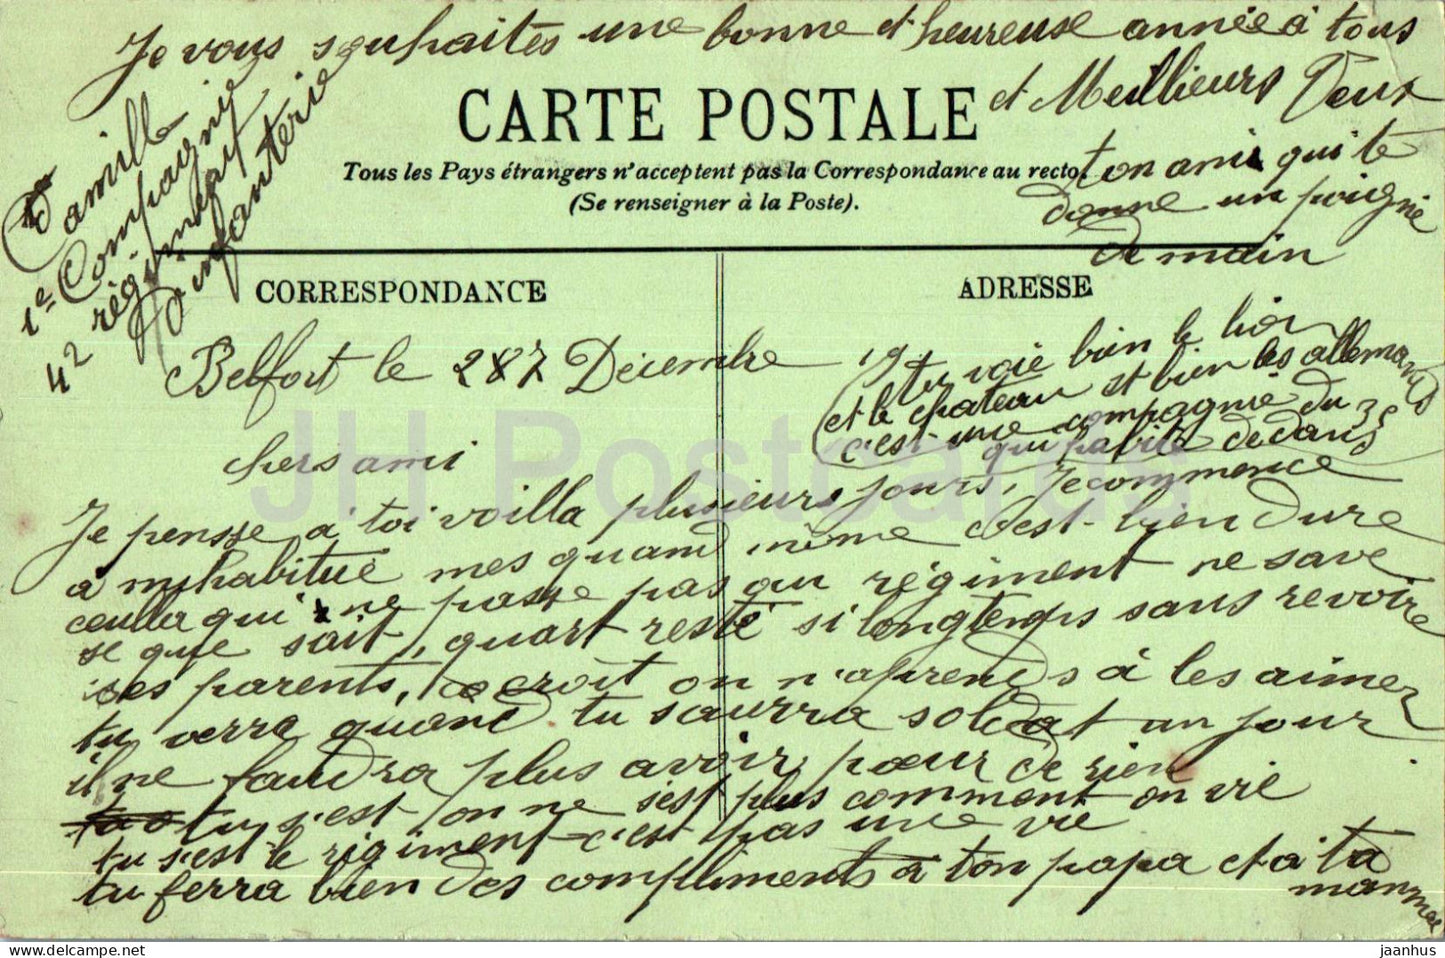 Je vous souhaites une bonne et heureuse année à tous
et Meillieurs Veux
ton ami qui te
donne un poigné
de main
Camille
1e Compagnie
42 régiment
D'infanterie
CARTE POSTALE
Tous les Pays étrangers n'acceptent pas la Correspondance au recto.
(Se renseigner à la Poste).
CORRESPONDANCE
ADRESSE
Belfort le 27 Décembre 19
tu voie bien le lion
et le chateau et bien les allemands
c'est une compagnie du 35
qui habite dedans
chers ami
Je pensse à toi voilla plusieurs jours, Je commence
à m'habitué mes quand même c'est bien dure
ceulla qui ne passe pas au régiment ne save
se que sait, quart resté si longtemps sans revoire
ses parents, croit on n'aprends à les aimer
tu verra quand tu saurra soldat un jour
il ne faudra plus avoir pœur de rien
tu s'est on ne s'est plus comment on vie
tu s'est le régiment c'est pas une vie
tu ferra bien des compliments à ton papa et a ta
manmae
JH Postcards
www.delcampe.net
jaanhus